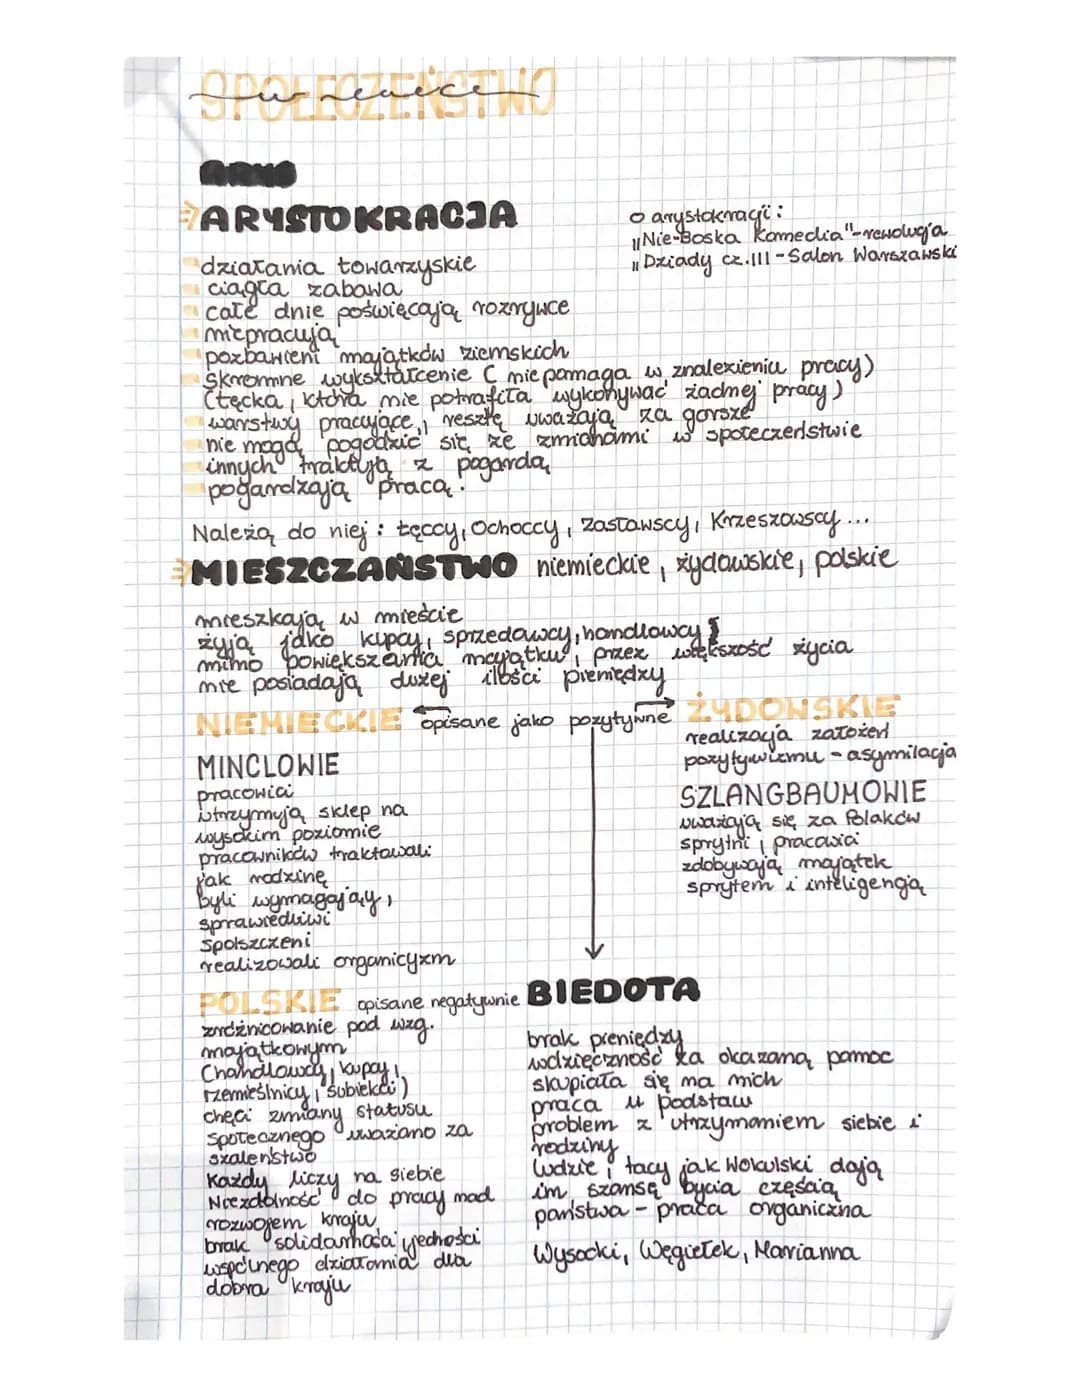 SPOŁECZEŃSTWO
w lalce
ARYSTOKRACJA
o arystokracji:
"Nie-Boska Komedia"-rewolucja
"Dziady cz.III - Salon Warszawski
działania towarzyskie
ciągła zabawa
całe dnie poświęcają rozrywce
nie pracują
pozbawieni majątków ziemskich
Skromne wykształcenie ( nie pomaga w znalezieniu pracy)
(Łęcka, która nie potrafiła wykonywać żadnej pracy)
warstwy pracujące, resztę uważają za gorsze
nie mogą pogodzić się ze zmianami w społeczeństwie
innych traktują z pogardą
pogardzają pracą.
Należą do niej: Łęccy, Ochoccy, Zasławscy, Krzeszowscy...
MIESZCZAŃSTWO niemieckie, żydowskie, polskie
mieszkają w mieście
żyją jako kupcy, sprzedawcy, handlowcy
mimo powiększania majątku, przez większość życia
nie posiadają dużej ilości pieniędzy
NIEMIECKIE opisane jako pozytywne ŻYDOWSKIE
MINCLOWIE
pracowici
utrzymują sklep na
wysokim poziomie
pracowników traktowali
jak rodzinę
byli wymagający,
sprawiedliwi
spolszczeni
realizowali organicyzm
realizacja założeń
pozytywizmu - asymilacja
SZLANGBAUMOWIE
uważają się za Polaków
sprytni, pracowici
zdobywają majątek
sprytem i inteligencją
POLSKIE opisane negatywnie
zróżnicowanie pod wzg.
majątkowym
(handlowcy, kupcy,
rzemieślnicy, subiekci)
chęci zmiany statusu
społecznego uważano za
szaleństwo
Każdy liczy na siebie
Niezdolność do pracy nad
rozwojem kraju
brak solidarności jedności
wspólnego działania dla
dobra kraju
BIEDOTA
brak pieniędzy
wdzięczność za okazaną pomoc
skupiała się na nich
praca u podstaw
problem z utrzymaniem siebie i
rodziny
ludzie, tacy jak Wokulski dają
im szansę bycia częścią
państwa - praca organiczna
Wysocki, Węgiełek, Marianna